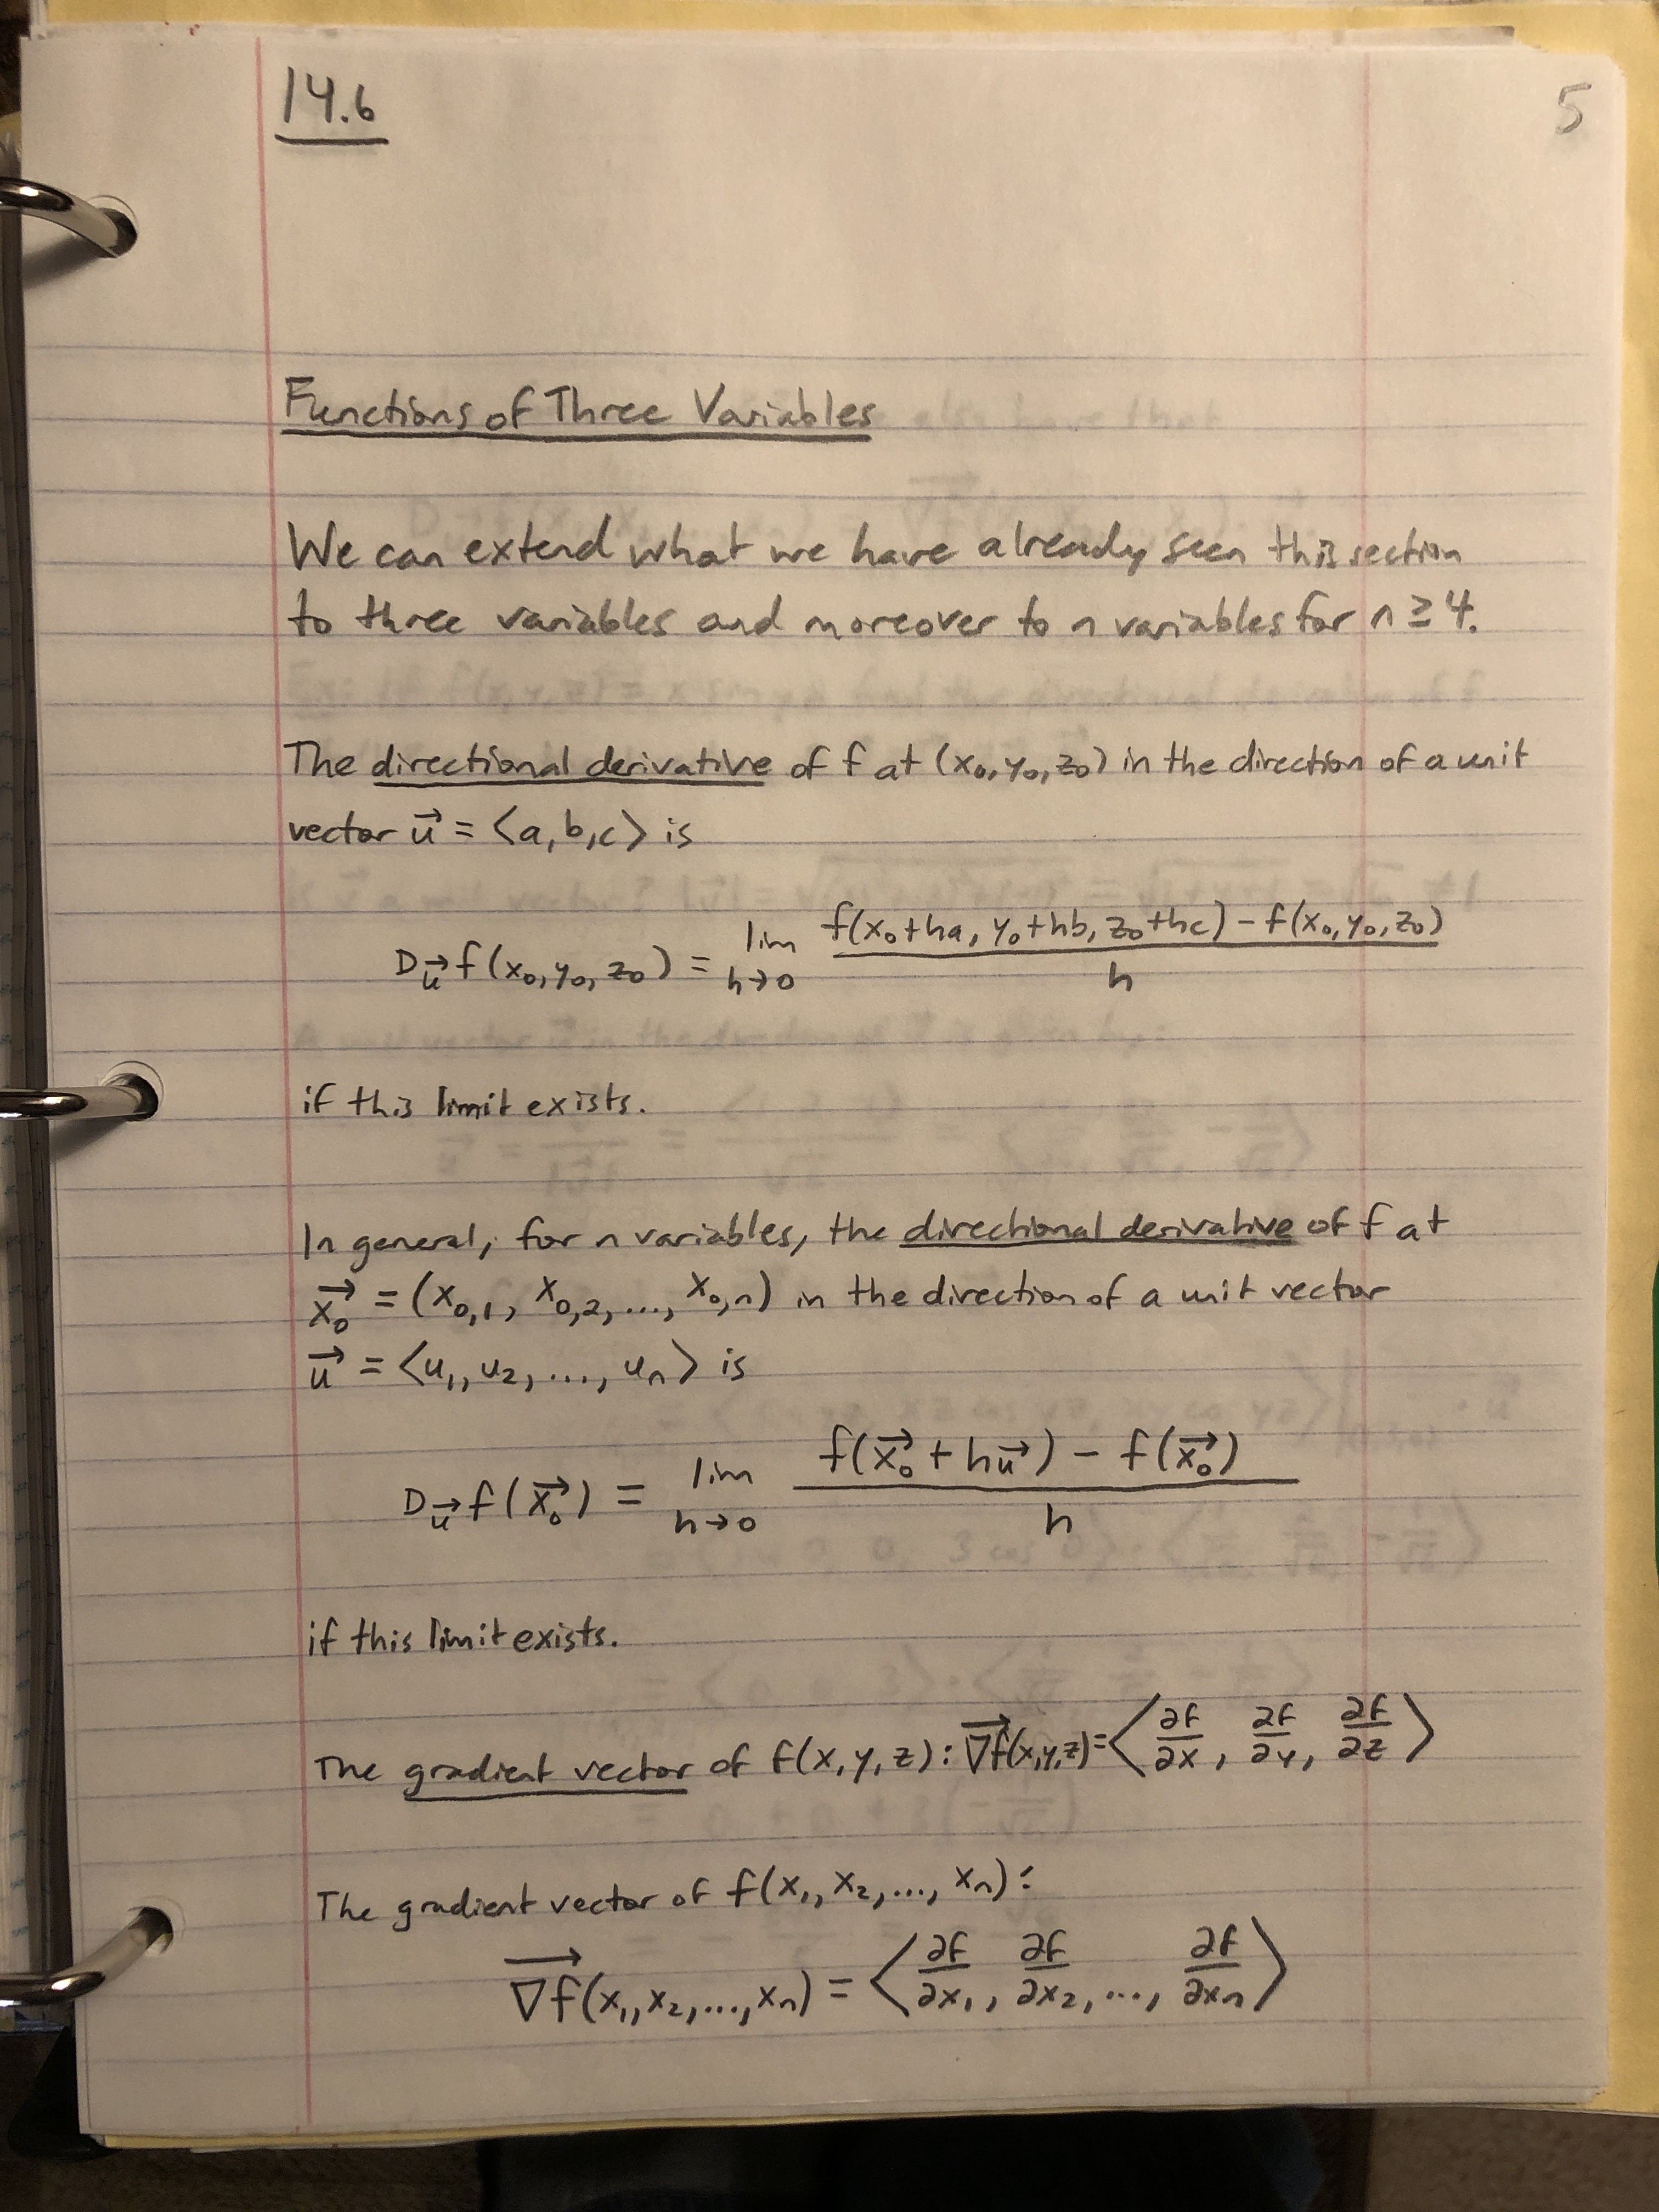 14.6
5
Functions of Three Variables
We can extend what we have already seen this section
to three variables and moreover to n variables for n ≥ 4.
The directional derivative of f at (x₀, y₀, z₀) in the direction of a unit
vector u⃗ = ⟨a, b, c⟩ is
D_u⃗ f(x₀, y₀, z₀) = lim_{h→0} (f(x₀+ha, y₀+hb, z₀+hc) − f(x₀, y₀, z₀)) / h
if this limit exists.
In general, for n variables, the directional derivative of f at
x⃗₀ = (x₀,₁, x₀,₂, ..., x₀,ₙ) in the direction of a unit vector
u⃗ = ⟨u₁, u₂, ..., uₙ⟩ is
D_u⃗ f(x⃗₀) = lim_{h→0} (f(x⃗₀ + hu⃗) − f(x⃗₀)) / h
if this limit exists.
The gradient vector of f(x, y, z): ∇f(x,y,z) = ⟨∂f/∂x, ∂f/∂y, ∂f/∂z⟩
The gradient vector of f(x₁, x₂, ..., xₙ):
∇f(x₁, x₂, ..., xₙ) = ⟨∂f/∂x₁, ∂f/∂x₂, ..., ∂f/∂xₙ⟩